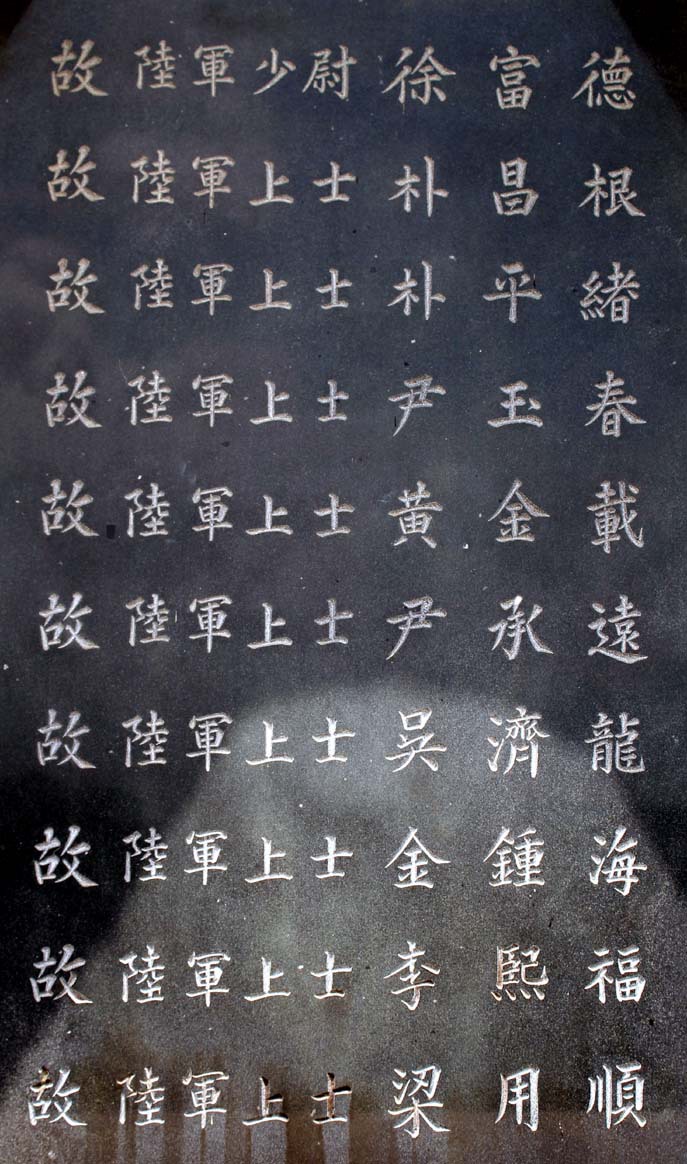 故陸軍少尉徐富德
故陸軍上士朴昌根
故陸軍上士朴平緒
故陸軍上士尹玉春
故陸軍上士黄金載
故陸軍上士尹承遠
故陸軍上士吳濟龍
故陸軍上士金鍾海
故陸軍上士李熙福
故陸軍上士梁用順